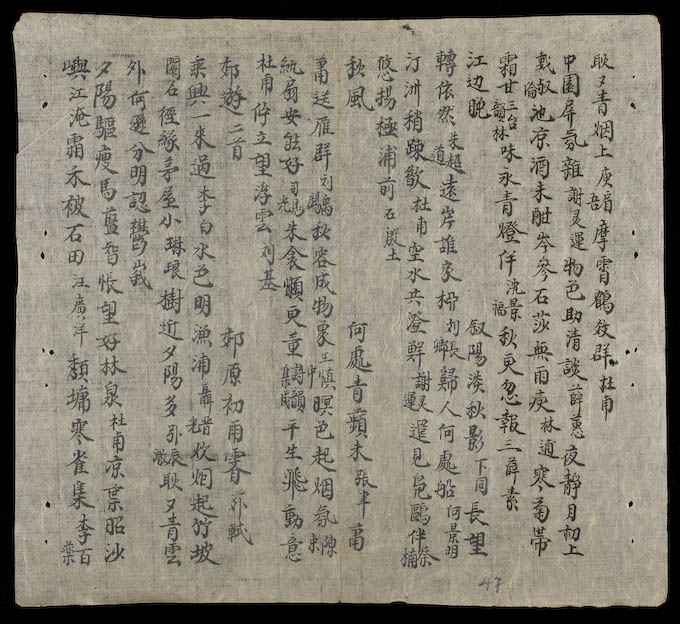 耿夕青烟上 庾肩吾 摩霄鶴數群 杜甫
中園屏氛雜 謝灵運 物色助清談 薛蕙 夜靜月初上
戴叔倫 池凉酒未酣 岑參 石莎無雨瘦 林逋 寒菊帶
霜甘 三台韻林 味永青燈伴 沈景福 秋更忽報三 薛素
江边晚 叙陽淡秋影 卞同 長望
轉依然 朱超道 遠岸誰家柳 刘長卿 歸人何處船 何景明
汀洲稍疎散 杜甫 空水共澄鮮 謝灵運 還見鳧鷗伴 蔡楠
悠揚極浦前 石殷士
秋風 何處青蘋末 張聿 蕭
蕭送雁群 刘禹錫 秋容成物象 王慎中 暝色起烟氛 陳束
紈扇安能好 司馬光 朱衾頓更 平生飛動意
杜甫 佇立望浮雲 刘基
郊遊二首 郊原初雨霽 苏軾
乘興一來過 李白 水色明漁浦 炊烟起竹坡
石徑緣茅屋小琳琅樹近夕陽多 耿夕青雲
外 何遜 分明認鬱峩
夕陽驅瘦馬 藍智 悵望好林泉 杜甫 凉葉昭沙
嶼 江淹 霜禾被石田 汪廣洋 頹墉寒雀集 李百藥
47